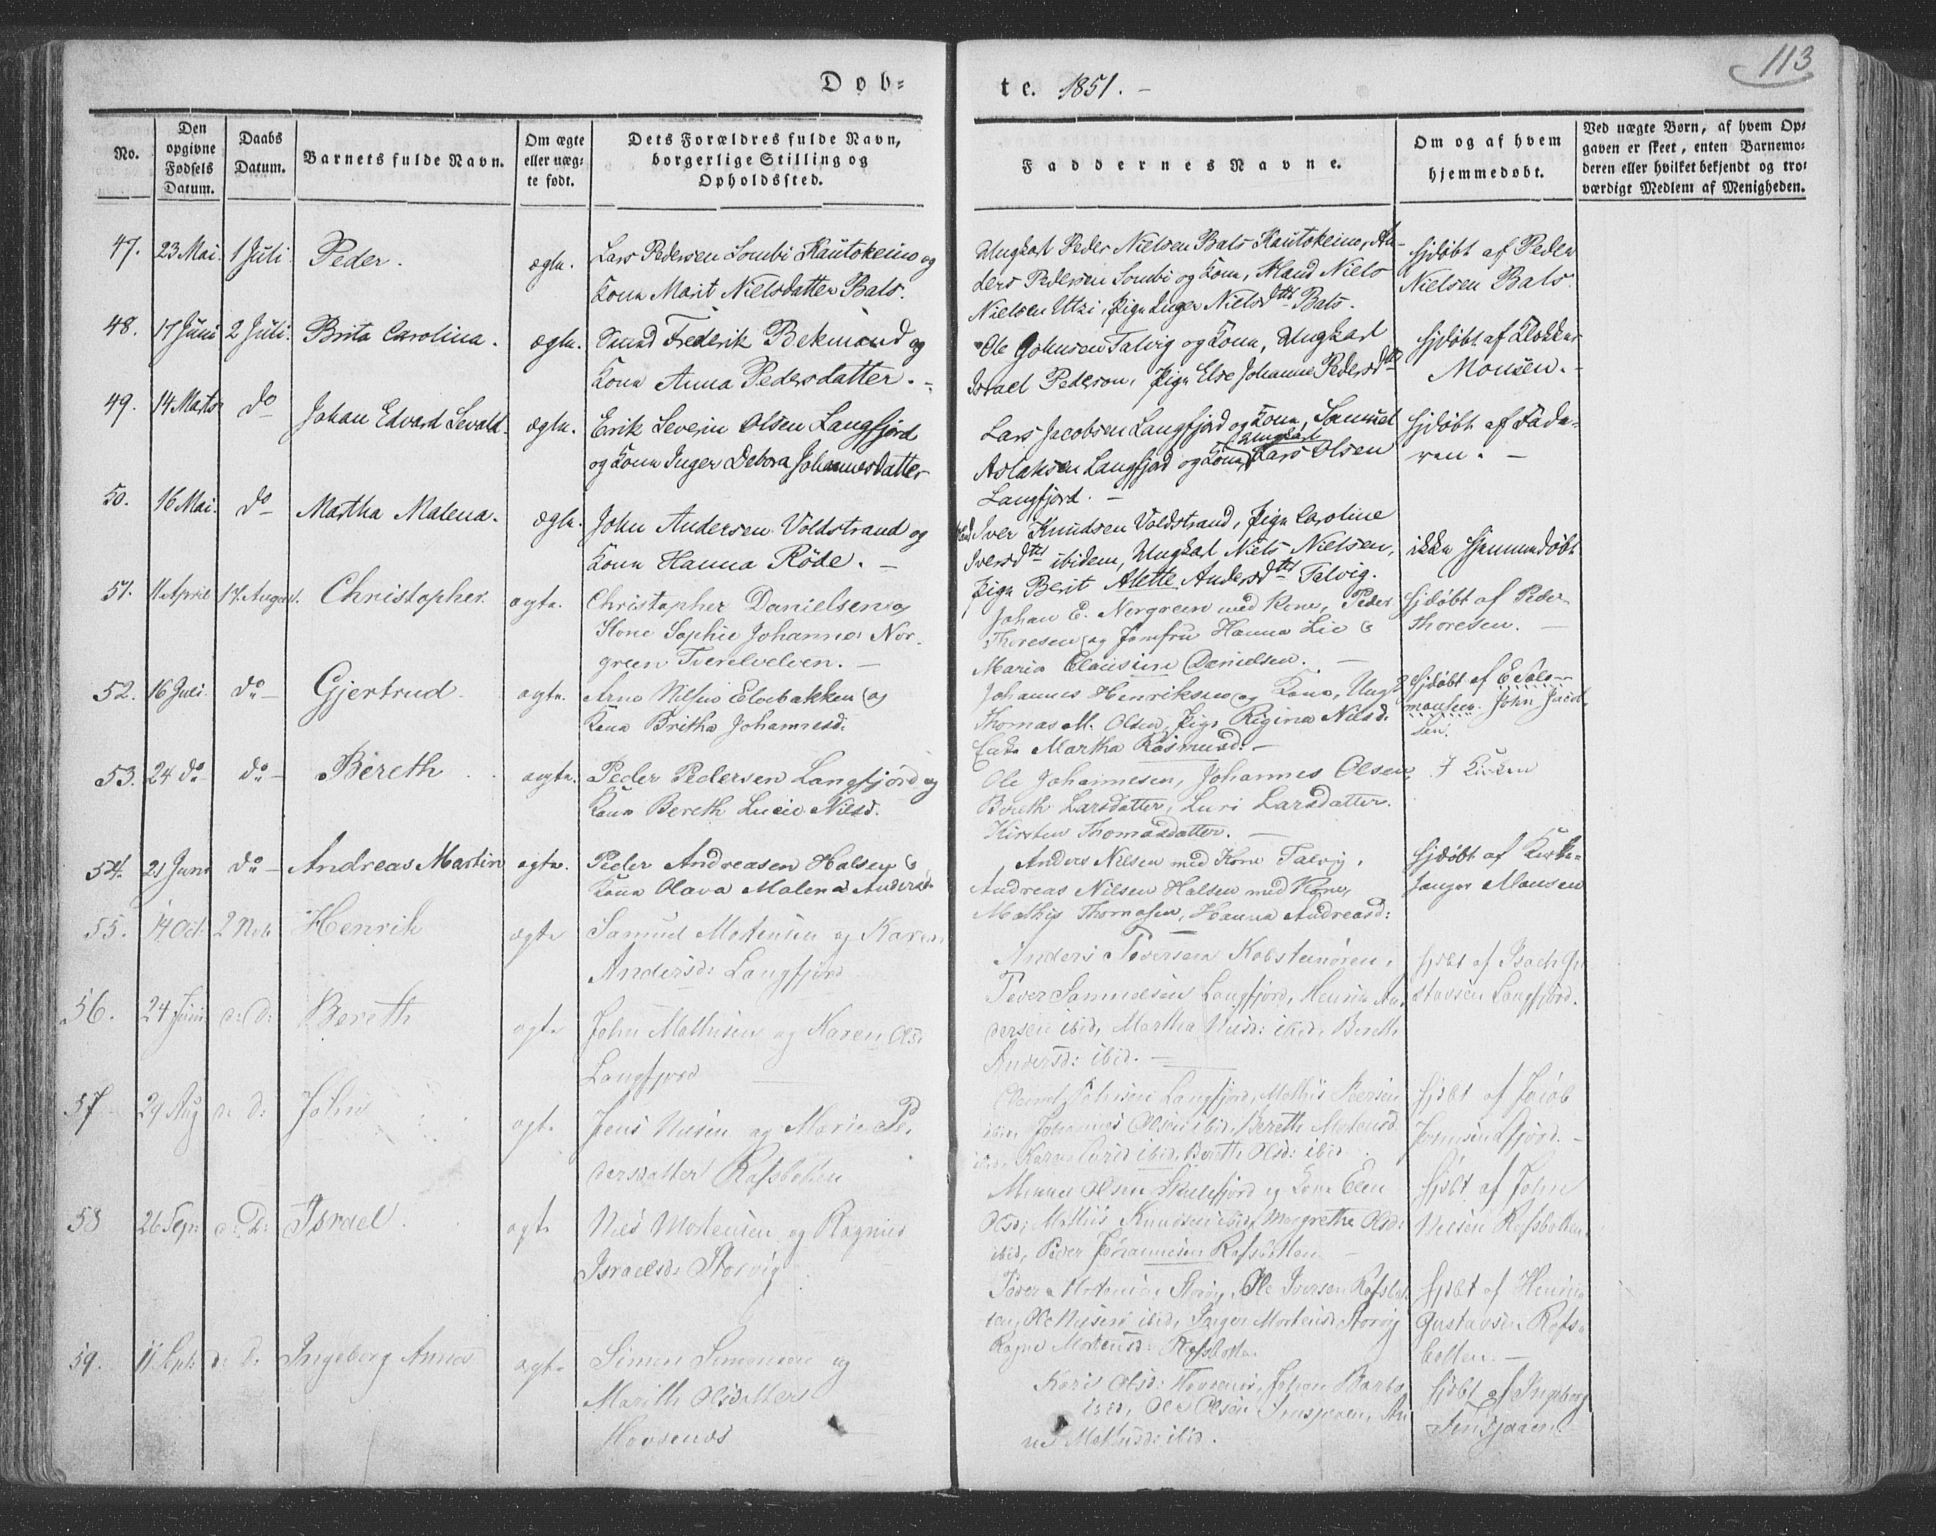 113
Døb-
te. 1851. -
No.
Den opgivne Fødsels Datum.
Daabs Datum.
Barnets fulde Navn.
Om ægte eller uægte født.
Dets Forældres fulde Navn, borgerlige Stilling og Opholdssted.
Faddernes Navne.
Om og af hvem hjemmedøbt.
Ved uægte Børn, af hvem Opgaven er skeet, enten Barnemoderen eller hvilket bekjendt og troværdigt Medlem af Menigheden.
47. 23 Mai. 1 Juli. Peder. ægte.
Lars Pedersen Sombi Kautokeino og
Kone Marit Nielsdatter Bals.
Ungkarl Peder Nielsen Bals Kautokeino, An-
ders Pedersen Sombi og Kone, Mand Niels
Nielsen Utzi, Pige Inger Nielsdtr Bals.
hjdøbt af Peder
Nielsen Bals.
48. 17 Juni 2 Juli. Brita Carolina. ægte.
Frederik Bekmand og
Kone Anna Pedersdatter. -
Ole Johnsen Talvig og Kone, Ungkarl
Israel Pederson, Pige Else Johanne Pedersd
hjdøbt af Klokker
Monsen. -
49. 14 Marts do Johan Edvard Sevald. ægte.
Erik Severin Olsen Langfjord
og Kone Inger Debora Johannesdatter
Lars Jacobsen Langfjord og Kone, Samuel
Aslaksen Langfjord og Kone, Ungkarl Lars Olsen
Langfjord. -
hjdøbt af Fade-
ren. -
50. 16 Mai. do Martha Malena. ægte.
John Andersen Voldstrand og
Kone Hanna Røde. -
Iver Knudsen Voldstrand, Pige Caroline
Iversdtr ibidem, Ungkarl Niels Nielsen,
Pige Berit Alette Andersdtr Talvig.
ikke hjemmedøbt
51. 11 April 17. August. Christopher. ægte.
Christopher Danielsen og
Kone Sophie Johanne Nor-
green Tverelvelven. -
Johan E. Norgreen med Kone, Peder
Thoresen og Jomfru Hanna Lie &
Maria Clausine Danielsen. -
hjdøbt af Peder
Thoresen. -
52. 16 Juli. do - Gjertrud. ægte.
Arne Nilsen Elvebakken og
Kone Britha Johannesd.
Johannes Henriksen og Kone, Ungk
Thomas M. Olsen, Pige Regine Nilsd.
Enke Martha Rasmusd. -
hjdøbt af E Salo-
monsen. John Jacob-
sen.
53. 24 do - do - Bereth. ægte.
Peder Pedersen Langfjord og
Kone Bereth Lucie Nilsd.
Ole Johannesen, Johannes Olsen
Bereth Larsdatter, Luri Larsdatter.
Kirsten Thomasdatter. -
I Kirken
54. 21 Juni do - Andreas Martin ægte.
Peder Andreasen Halsen &
Kone Olava Malena Andersd.
Anders Nilsen med Kone Talvig,
Andreas Nilsen Halsen med Kone,
Mathis Thomasen, Hanna Andreasd:
hjdøbt af Kirke-
sanger Monsen
55. 14 Oct. 2 Nov. Henrik ægte
Samuel Mortensen og Karen
Andersd: Langfjord
Anders Iversen Kobstenøren,
Peder Samuelsen Langfjord, Henrik An-
dersen ibid, Martha Nilsd: ibid, Bereth
Andersd: ibid. -
hjdbt af Isach Gu-
stavsen Langfjord.
56. 24 Juni d: d: Bereth ægte
John Mathisen og Karen Olsd
Langfjord
Johnsen Langfjord, Mathis Persen
ibid, Johannes Olsen ibid, Bereth Mortensd
ibid, ibid, Bereth Olsd: ibid.
hjdbt af Jacob
57 29 Aug d: d: John ægte
Jens Nilsen og Marie Pe-
dersdatter Rafsbotten
Mikkel Olsen Skillefjord og Kone Elen
Olsd: Mathis Knudsen ibid, Margrethe Olsd:
ibid, Peder Johannesen Rafsbotten
hjdbt af John
Nilsen Rafsbotten.
58 26 Sep: d: d: Israel. ægte
Nils Mortensen og Ragnild
Israelsd: Storvig
Peder Mortensen Storvig, Ole Iversen Rafsbot-
ten, Ole Nilsen ibid, Inger Mortensd. Storvig
Ragne Mortensd: Rafsbotten.
hjdbt af Henrik
Gustavsen Rafs-
botten. -
59. 11 Sept: d: d: Ingeborg Annes ægte
Simon Simonsen og
Marith Olsdatter
Karis Olsd: Johan
ibid, Ole Olsen An-
nes Mathisd: ibid.
hjdbt af Ingeborg